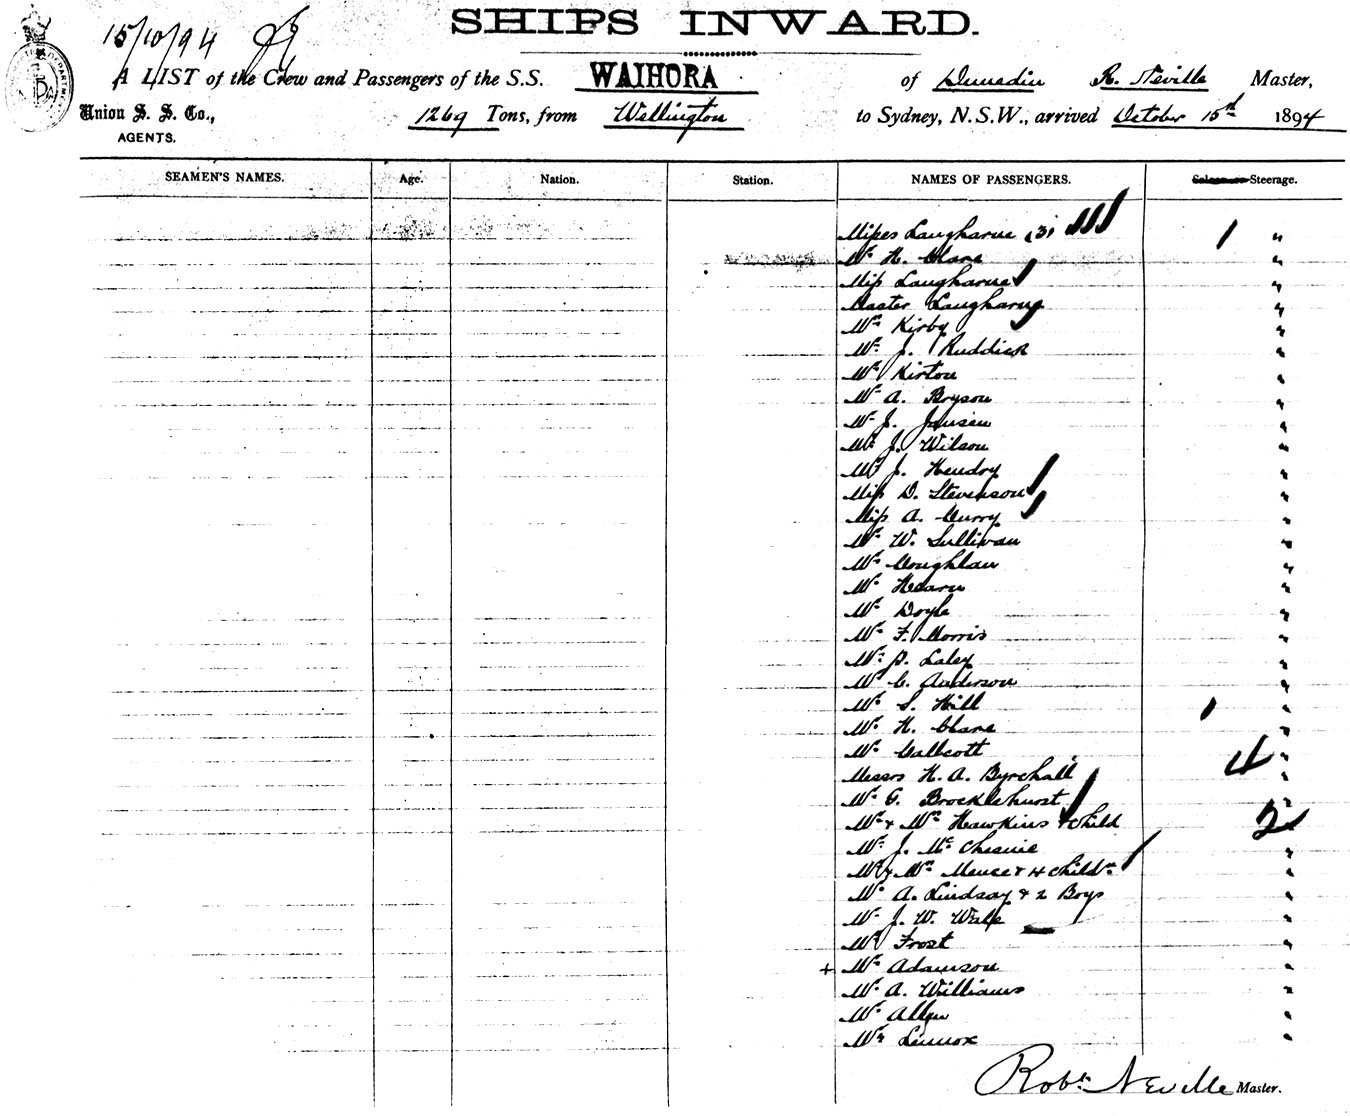 SHIPS INWARD.
15/10/94
A LIST of the Crew and Passengers of the S.S. WAIHORA of Dunedin R. Neville Master,
Union S. S. Co., 1269 Tons, from Wellington to Sydney, N.S.W., arrived October 15th 1894
AGENTS.
SEAMEN'S NAMES. Age. Nation. Station. NAMES OF PASSENGERS. Saloon or Steerage.
Misses Laugharne (3) 1 "
Mr H. Clare "
Miss Laugharne "
Master Laugharne "
Mrs Kirby "
Mr J. Ruddick "
Mr Kirton "
Mr A. Bryson "
Mr J. Jansen "
Mr J. Wilson "
Mr J. Hendry "
Miss D. Stevenson "
Miss A. Curry "
Mr W. Sullivan "
Mr Coughlan "
Mr Hearn "
Mr Doyle "
Mr F. Morris "
Mr P. Laley "
Mr C. Anderson "
Mr S. Hill "
Mr H. Clare "
Mr Callcott "
Messrs H. A. Byrchall 4 "
Mr G. Brocklehurst "
Mr & Mrs Hawkins & child 2
Mr J. Mc Chesnie "
Mr & Mrs Meuse & 4 childn "
Mr A. Lindsay & 2 Boys "
Mr J. W. Wale "
Mr Frost "
+ Mr Adamson "
Mr A. Williams "
Mr Allen "
Mr Lennox "
Robt Neville Master.